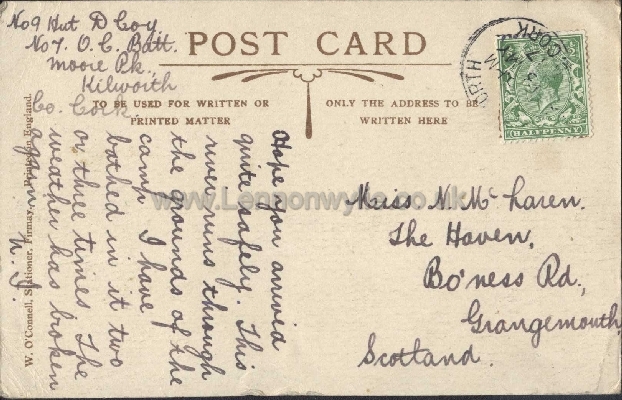 No 9 Hut D Coy
No 7. O. C. Batt.
Moore Pk.
Kilworth
Co. Cork
POST CARD
TO BE USED FOR WRITTEN OR
PRINTED MATTER
ONLY THE ADDRESS TO BE
WRITTEN HERE
CO. CORK
HALFPENNY
Hope you arrived
quite safely. This
river runs through
the grounds of the
camp I have
bathed in it two
or three times. The
weather has broken
again.
Miss N. Mc Laren.
The Haven.
Bo'ness Rd.,
Grangemouth
Scotland.
W. O'Connell, Stationer, Fermoy. Printed in England.
www.Lennonwylie.co.uk